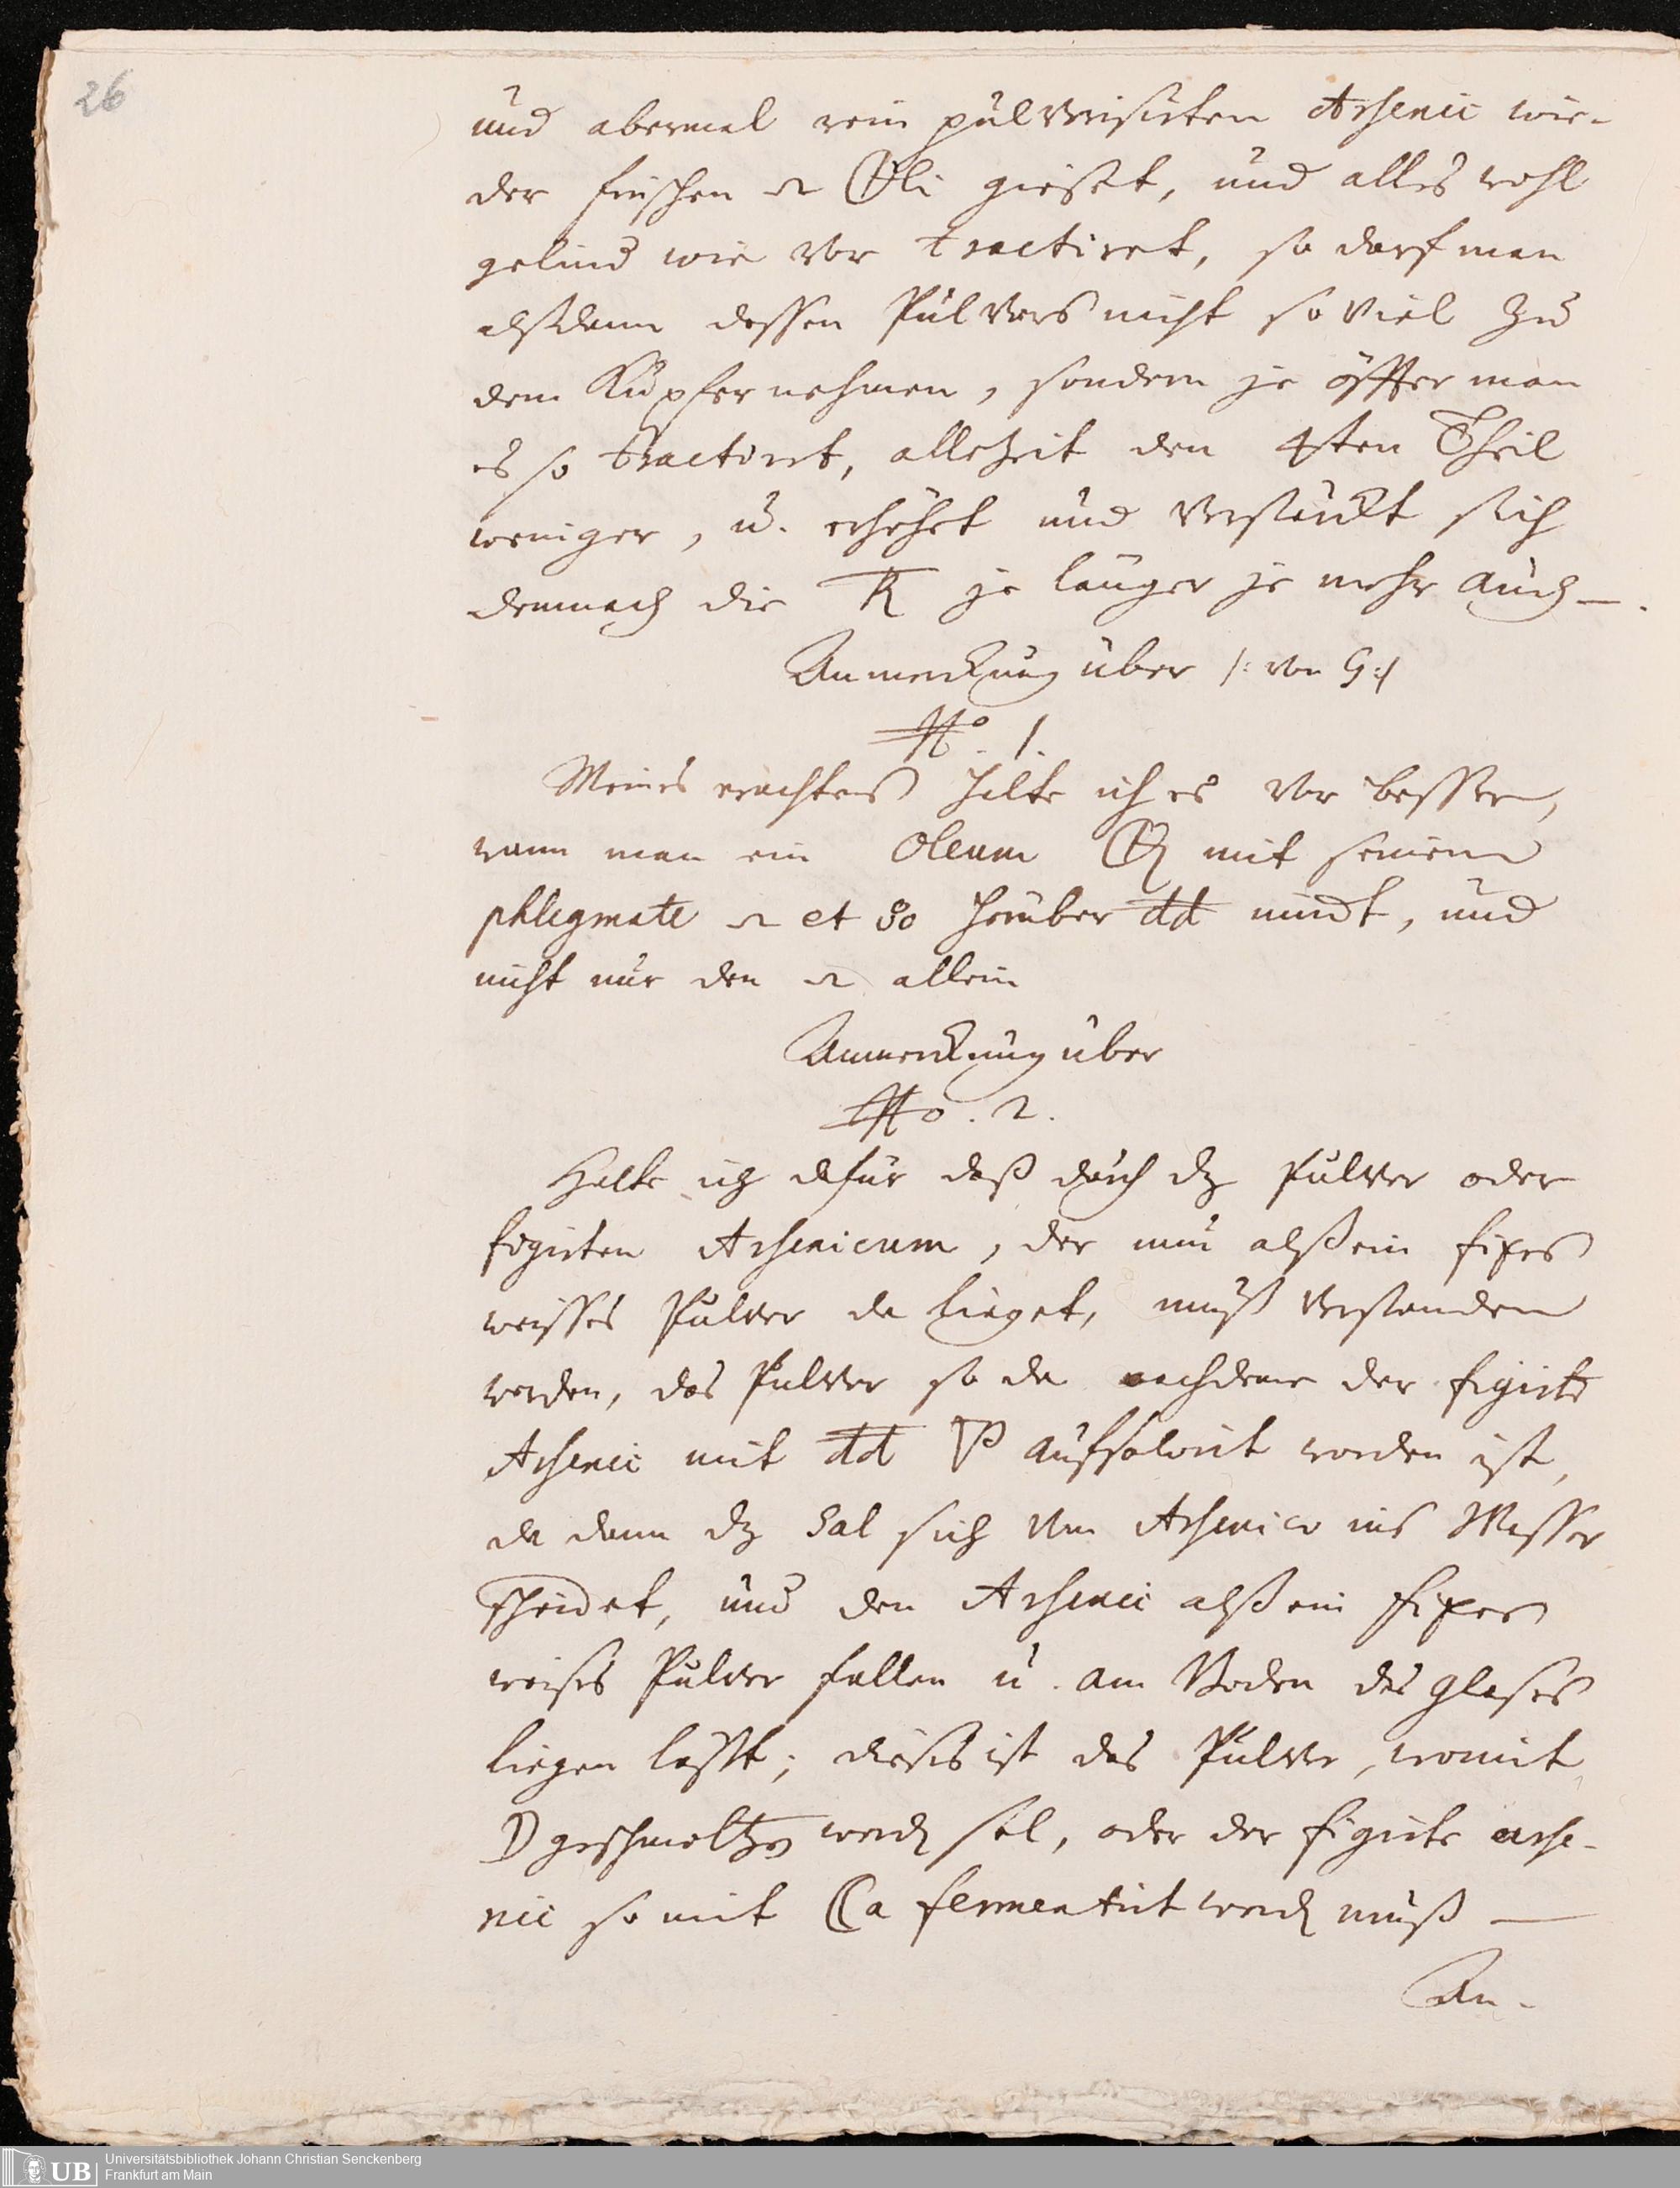 26
und abermal rein pulverisirten Arsenic wie-
der frischen Oli gießet, und alles wohl
gelind wie vor tractiret, so darf man
alßdann dessen Pulvers nicht so viel zu
dem Kupfer nehmen, sondern je öffter man
es so tractirt, allezeit den 4ten Theil
weniger, u. erhöhet und verstärckt sich
demnach die je länger je mehr auch —.
Anmerckung über /: von G :/
No. 1.
Meines erachtens halte ich es vor besser,
wann man ein Oleum mit seinem
phlegmate et so herüber dd nimt, und
nicht nur den allein
Anmerckung über
No. 2.
Halte ich dafür daß durch dz Pulver oder
figirten Arsenicum, der nun alß ein fixes
weisses Pulver da lieget, muß verstanden
werden, das Pulver so da nachdeme der figirte
Arsenic mit dd aufsolvirt worden ist,
da dann dz Sal sich vom Arsenico ins Wasser
scheidet, und den Arsenic alß ein fixes
weises Pulver fallen u. am Boden des glases
liegen läßt; dieses ist das Pulver, womit
☽ geschmoltzen werden sol, oder der figirte arse-
nic so mit ☾a fermentirt werden muß —
An-
UB
Universitätsbibliothek Johann Christian Senckenberg
Frankfurt am Main